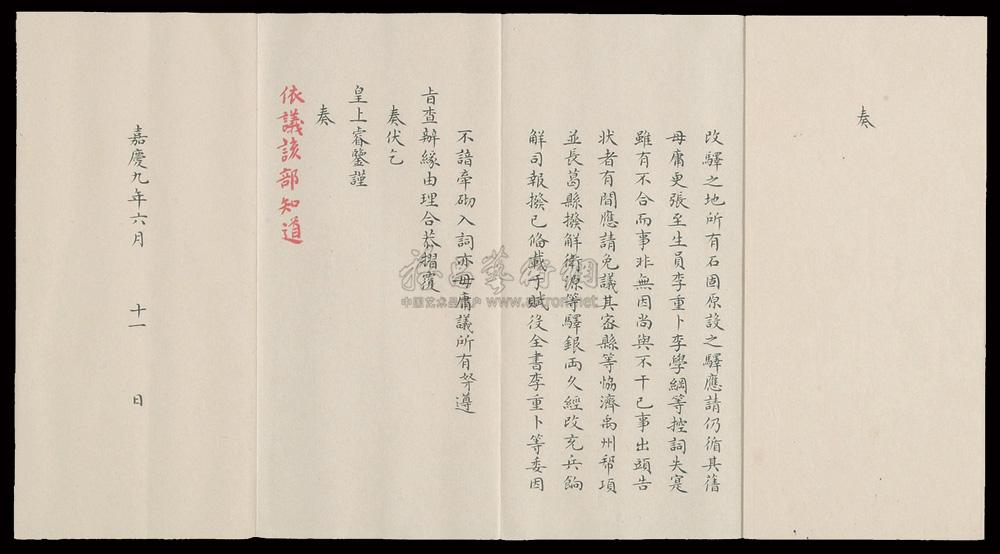 奏
改驛之地所有石固原設之驛應請仍循其舊
毋庸更張至生員李重卜李學綱等控詞失寔
雖有不合而事非無因尚與不干己事出頭告
狀者有間應請免議其密縣等協濟禹州幇項
並長葛縣撥觧衛源等驛銀兩久經改充兵餉
觧司報撥已俻載于賦役全書李重卜等委因
不諳牵砌入詞亦毋庸議所有奴遵
旨查辦緣由理合恭摺覆
奏伏乞
皇上睿鑒謹
奏
依議該部知道
嘉慶九年六月 十一 日